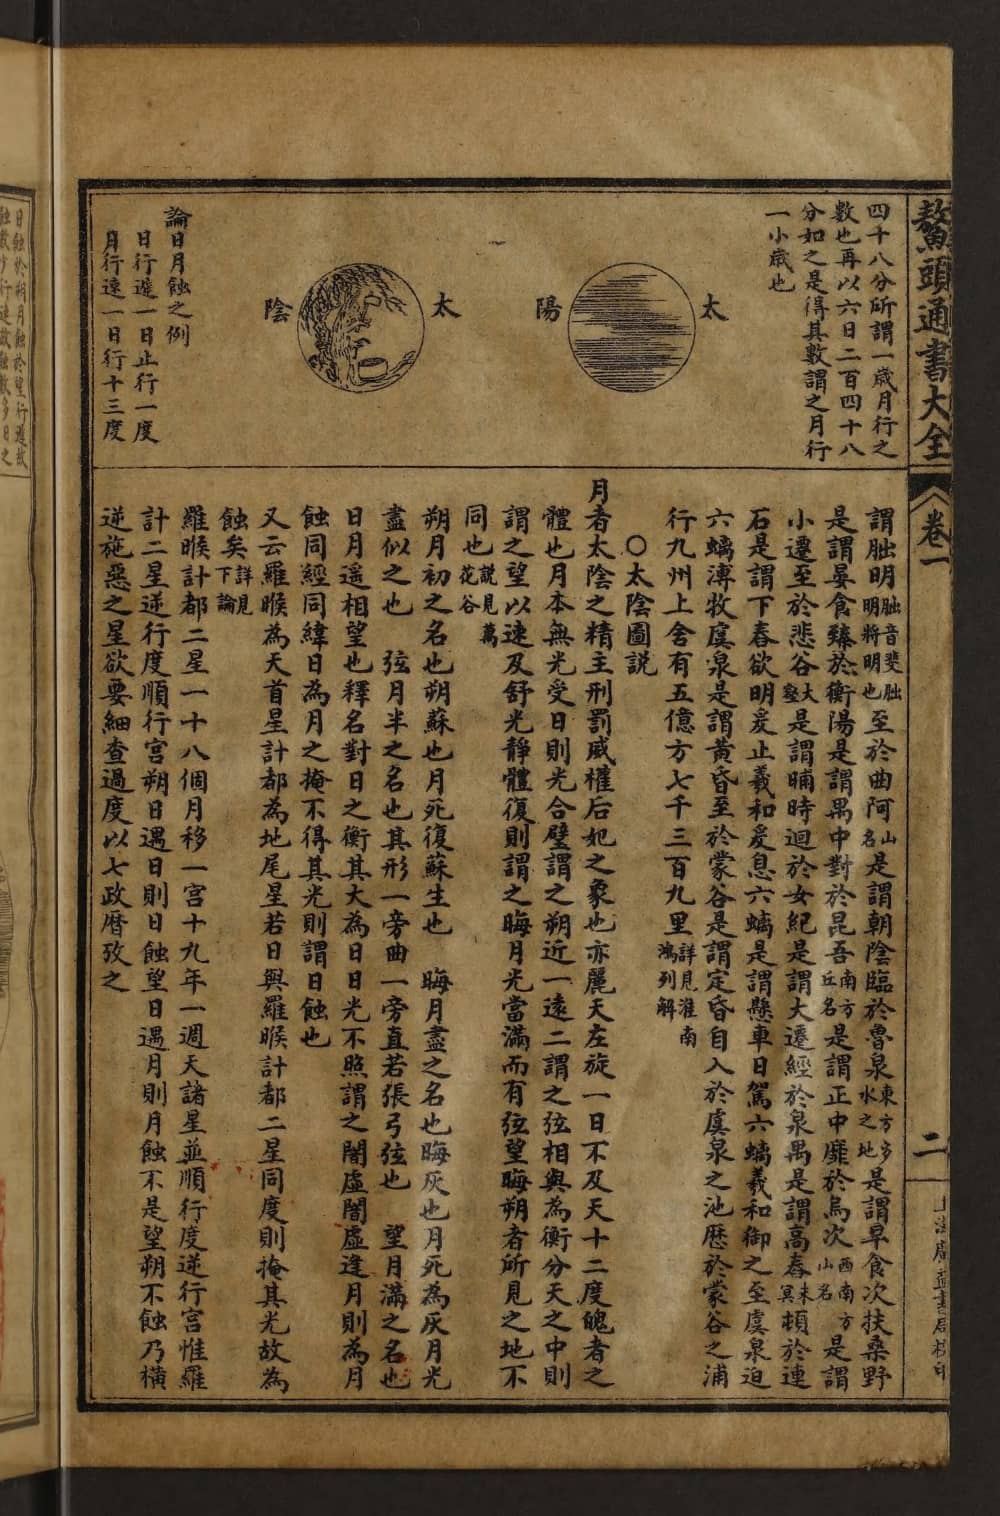 鰲頭通書大全
卷一
二
四十八分所謂一歲月行之
數也再以六日二百四十八
分如之是得其數謂之月行
一小歲也
太
陽
太
陰
論日月蝕之例
日行遲一日止行一度
月行速一日行十三度
謂朏明朏音斐朏明將明也至於曲阿山名是謂朝陰臨於魯泉東方多水之地是謂早食次扶桑野
是謂晏食臻於衡陽是謂禺中對於昆吾南方丘名是謂正中靡於鳥次西南方山名是謂
小遷至於悲谷大壑是謂晡時迴於女紀是謂大遷經於泉禺是謂高舂未冥頓於連
石是謂下舂欲明爰止羲和爰息六螭是謂懸車日駕六螭羲和御之至虞泉迫
六螭溥牧虞泉是謂黃昏至於蒙谷是謂定昏自入於虞泉之池歷於蒙谷之浦
行九州上舍有五億方七千三百九里詳見淮南鴻列解
○太陰圖説
月者太陰之精主刑罰威權后妃之象也亦麗天左旋一日不及天十二度魄者之
體也月本無光受日則光合璧謂之朔近一遠二謂之弦相與為衡分天之中則
謂之望以速及舒光靜體復則謂之晦月光當滿而有弦望晦朔者所見之地不
同也説見萬花谷
朔月初之名也朔蘇也月死復蘇生也　晦月盡之名也晦灰也月死為灰月光
盡似之也　弦月半之名也其形一旁曲一旁直若張弓弦也　望月滿之名也
日月遙相望也釋名對日之衡其大為日日光不照謂之闇虛闇虛逢月則為月
蝕同經同緯日為月之掩不得其光則謂日蝕也
又云羅睺為天首星計都為地尾星若日與羅睺計都二星同度則掩其光故為
蝕矣詳見下論
羅睺計都二星一十八個月移一宮十九年一週天諸星並順行度逆行宮惟羅
計二星逆行度順行宮朔日遇日則日蝕望日遇月則月蝕不是望朔不蝕乃橫
逆施惡之星欲要細查過度以七政曆攷之